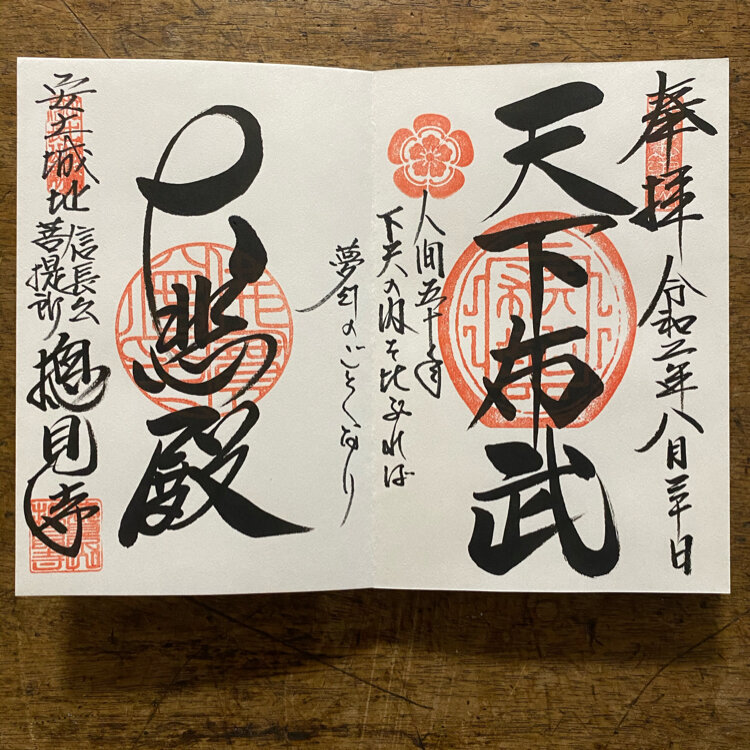 奉拝
令和二年八月三十日
天下布武
人间五十年
下天の内を比ぶれば
夢幻のごとくなり
大悲殿
安土城址
信長公
菩提所
摠見寺